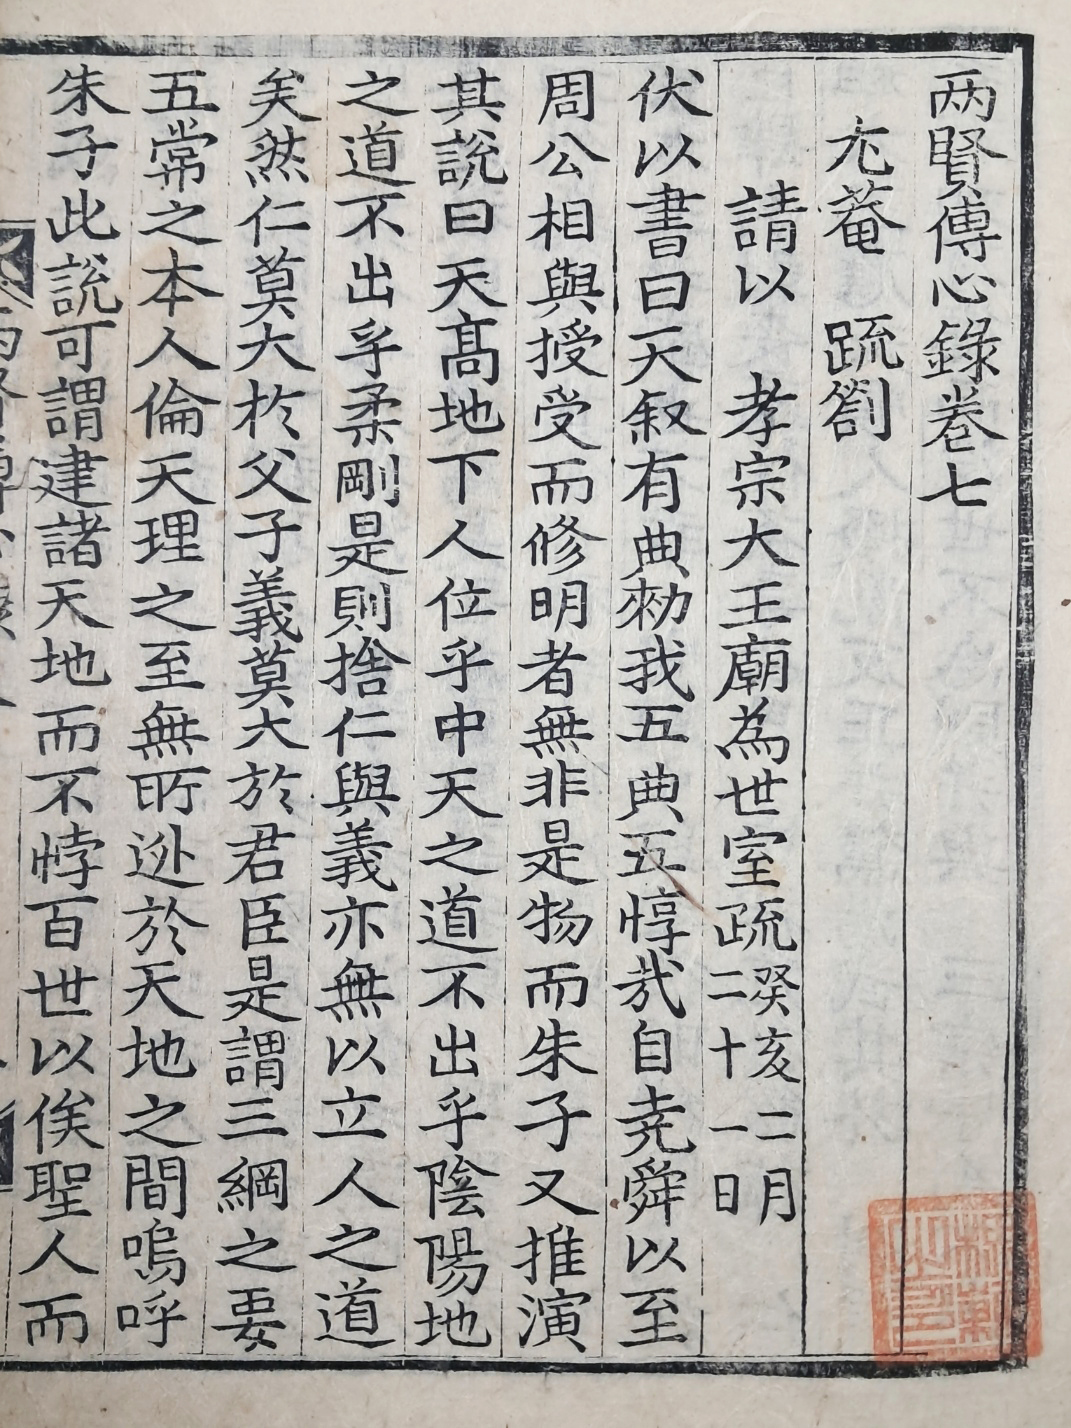 两賢傳心錄卷七
尤菴　疏劄
請以　孝宗大王廟為世室疏癸亥二月二十一日
伏以書曰天叙有典勑我五典五惇㢤自尭舜以至
周公相與授受而修明者無非是物而朱子又推演
其說曰天髙地下人位乎中天之道不出乎陰陽地
之道不出乎柔剛是則捨仁與義亦無以立人之道
矣然仁莫大於父子義莫大於君臣是謂三綱之要
五常之本人倫天理之至無所逃於天地之間嗚呼
朱子此說可謂建諸天地而不悖百世以俟聖人而